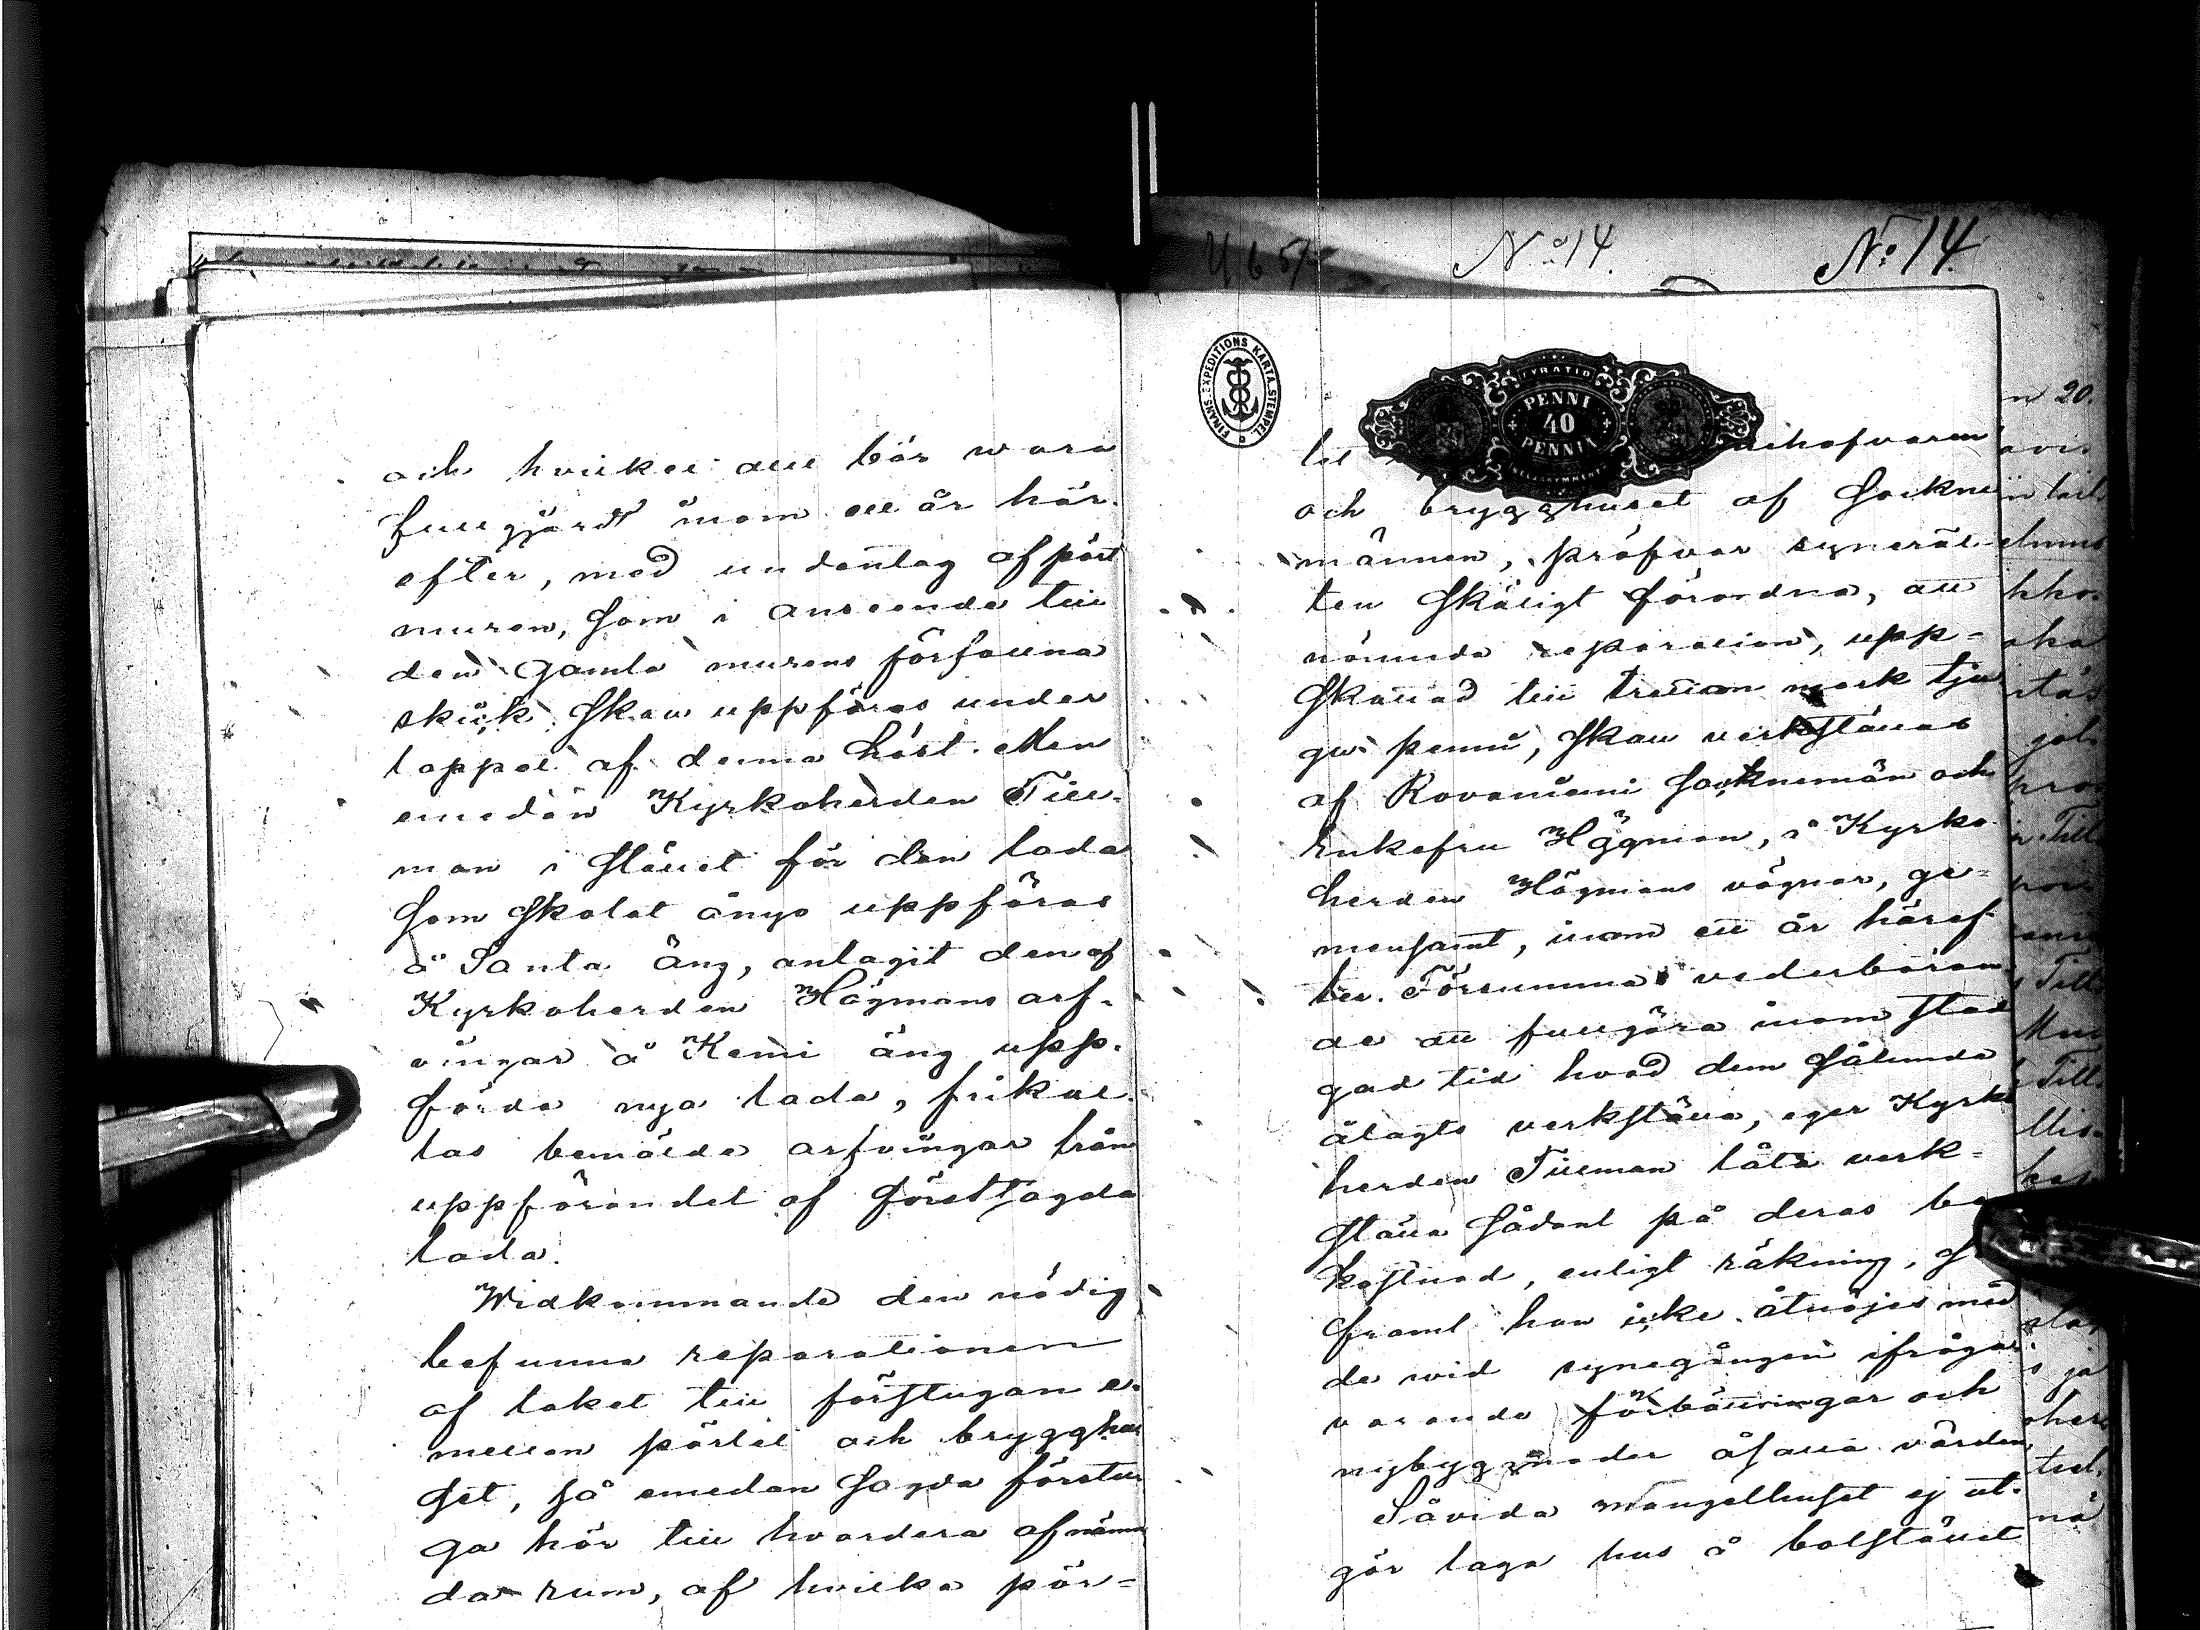 och hvilket allt bör wara
fullgjordt inom ett år här-
efter, med undantag af pört
muren, som i anseende till
den gamla murens förfallna
skick skall uppföras under
loppet af denna höst. Men
emedan Kyrkoherden Till-
man i stället för den lada
som skolat ånyo uppföras
å Santa äng, antagit den af
Kyrkoherden Högmans arf-
vingar å Kemi äng upp-
förda nya lada, frikal-
las bemälde arfvingar från
uppförandet af föreslagda
lada.
Widkommande den nödig
befunna reparationen
af taket till förstugan e-
mellan pörtet och brygghu
set, så emedan sagda förstu
ga hör till hvardera af nämn
da rum, af hvilka pör-
No 14.
No 14.
FINANS.EXPEDITIONS KARTA.STEMPEL
PENNI
40
PENNIÄ
tet
och brygghuset af Sockne
männen, pröfvar synerät
ten skäligt förordna, att
nämnda reparation, upp-
skattad till trettan mark tju
gu penni, skall verkställas
af Rovaniemi Socknemän och
Enkefru Högman, å Kyrko
herden Högmans vägnar, ge-
mensamt, inom ett år häref-
ter. Försumma vederböran-
de att fullgöra inom stad
gad tid hvad dem sålunda
ålagts verkställa, eger Kyrko
herden Tillman låta verk-
ställa sådant på deras be
kostnad, enligt räkning, så
framt han icke åtnöjes med
de wid synegången ifråga-
varande förbättringar och
nybyggnader åsatta värden.
Såvida mangelhuset ej ut-
gör laga hus å bolstället